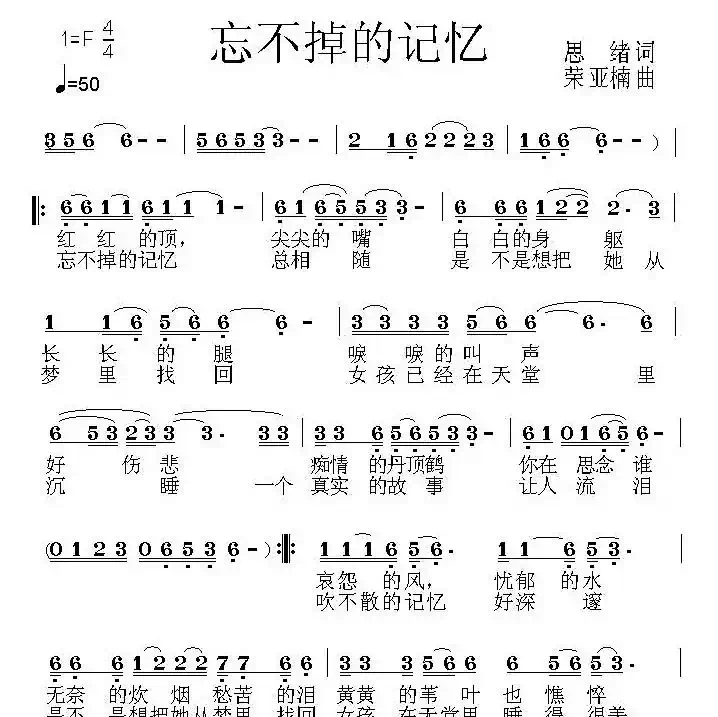 1=F 4/4
忘不掉的记忆
思 绪 词
♩=50
荣亚楠 曲
3 5 6 6 - - | 5 6 5 3 3 - - | 2 1 6 2 2 2 3 | 1 6 6 6 - - )
6 6 1 1 6 1 1 1 - | 6 1 6 5 5 3 3 - | 6 6 6 1 2 2 2 . 3
红 红 的顶, 尖尖的 嘴 白 白的身 躯
忘不掉的记忆 总相 随 是 不是想把 她 从
1 1 6 5 6 6 6 - | 3 3 3 3 5 6 6 6 . 6
长 长 的 腿 唳 唳的叫 声
梦 里 找 回 女孩已经在天堂 里
6 5 3 2 3 3 3 . 3 3 | 3 3 6 5 3 5 6 3 - | 6 1 0 1 6 5 6 -
好 伤 悲 痴情 的丹顶鹤 你在 思念 谁
沉 睡 一个 真实 的故 事 让人 流 泪
(0 1 2 3 0 6 5 3 6 - ) 1 1 1 6 5 6 . 1 1 6 5 3 .
哀怨 的风, 忧郁 的水
吹不散的记忆 好深 邃
6 6 6 1 2 2 2 7 7 6 6 | 3 3 3 6 1 2 2 6 5 5 6 3
无奈 的炊 烟 愁苦 的泪 黄黄 的苇 叶 也 憔 悴
是不 是想把她从梦里 找回 女孩 在天堂里 睡 得 很美